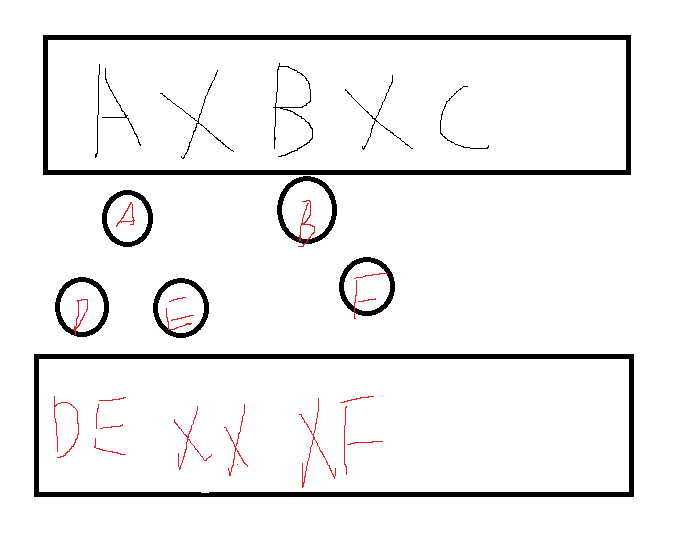 A X B X C
A B
D E F
DE XX XF